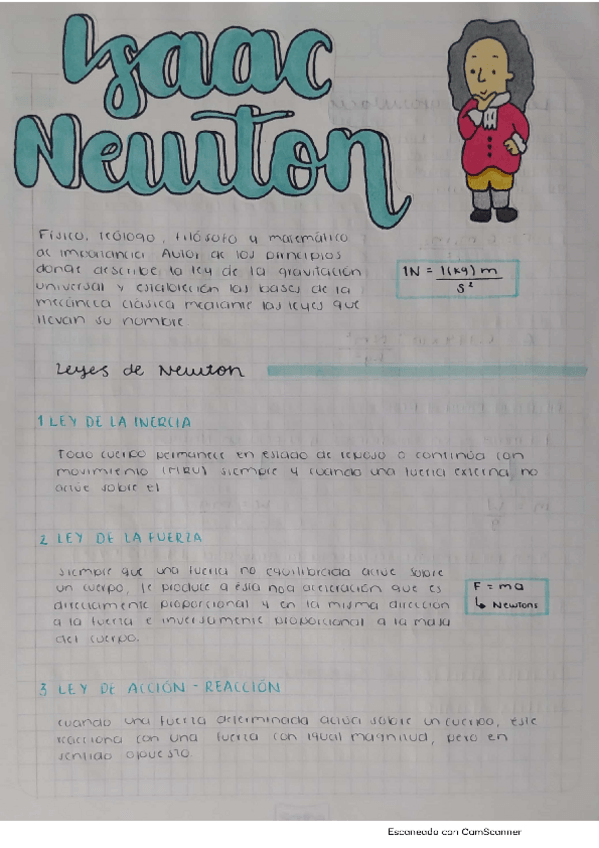 Isaac
Newton
Físico, teólogo, filósofo y matemático
de importancia. Autor de los principios
donde describe la ley de la gravitación
universal y establecion las bases de la
mecánica clásica mediante las leyes que
llevan su nombre
1N = 1(kg) m
s²
Leyes de Newton
1 LEY DE LA INERCIA
Todo cuerpo permanece en estado de reposo o continúa con
movimiento (MRU) siempre y cuando una fuerza externa no
actúe sobre él
2 LEY DE LA FUERZA
siempre que una fuerza no equilibrada actúe sobre
un cuerpo, le produce a ésta una aceleración que es
directamente proporcional y en la misma dirección
a la fuerza e inversamente proporcional a la masa
del cuerpo.
F = ma
↳ Newtons
3 LEY DE ACCIÓN - REACCIÓN
cuando una fuerza determinada actúa sobre un cuerpo, éste
reacciona con una fuerza con igual magnitud, pero en
sentido opuesto.
Escaneado con CamScanner